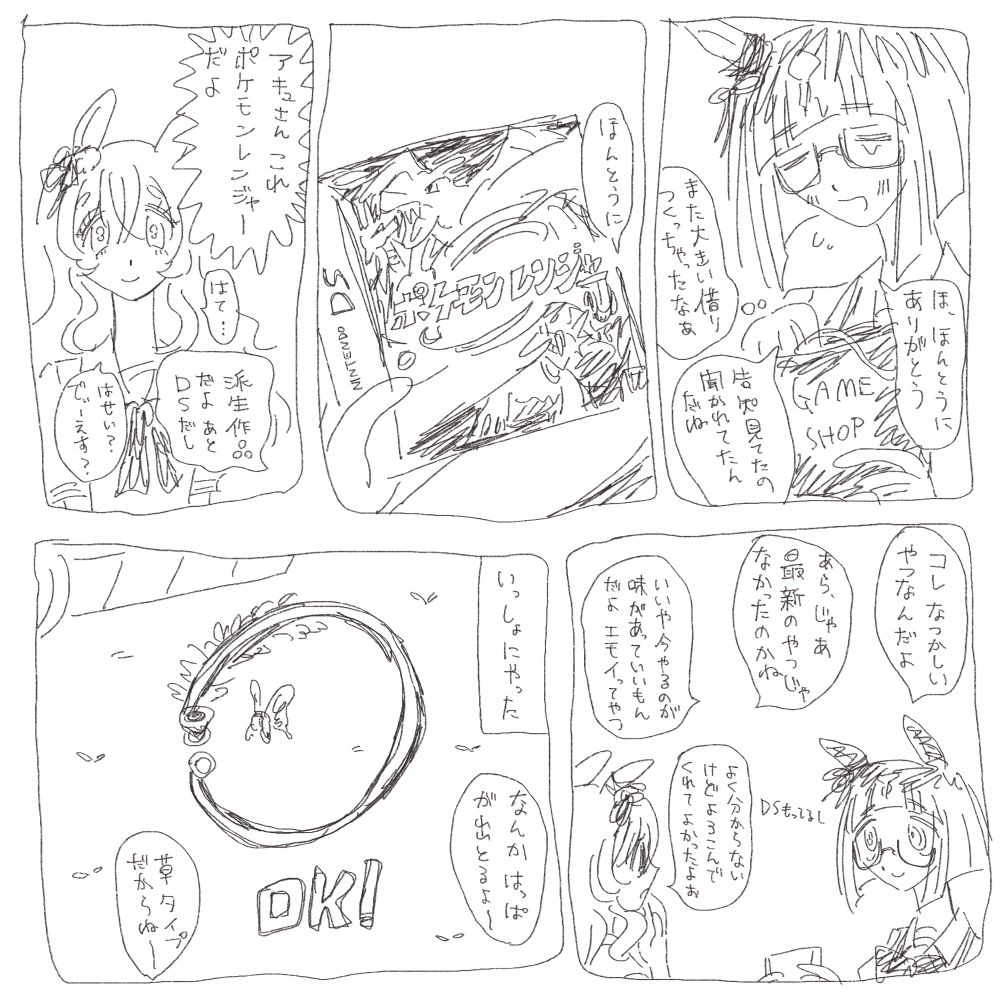 ほ、ほんとうに
ありがとう
また大きい借り
つくっちゃったなぁ
GAME
SHOP
告知見てたの
聞かれてたん
だね
ほんとうに
ポケモンレンジャー
NINTENDO DS
アキュさん これ
ポケモンレンジャー
だよ
はて…
派生作品
だよ あと
DSだし
はせい?
でぃーえす?
コレ なつかしい
やつなんだよ
あら、じゃあ
最新のやつじゃ
なかったのかね
いいや今やるのが
味があっていいもん
だよ エモイってやつ
DSもってるし
よく分からない
けどよろこんで
くれてよかったよぉ
いっしょにやった
なんかはっぱ
が出とるよ〜
OK!
草タイプ
だからね〜